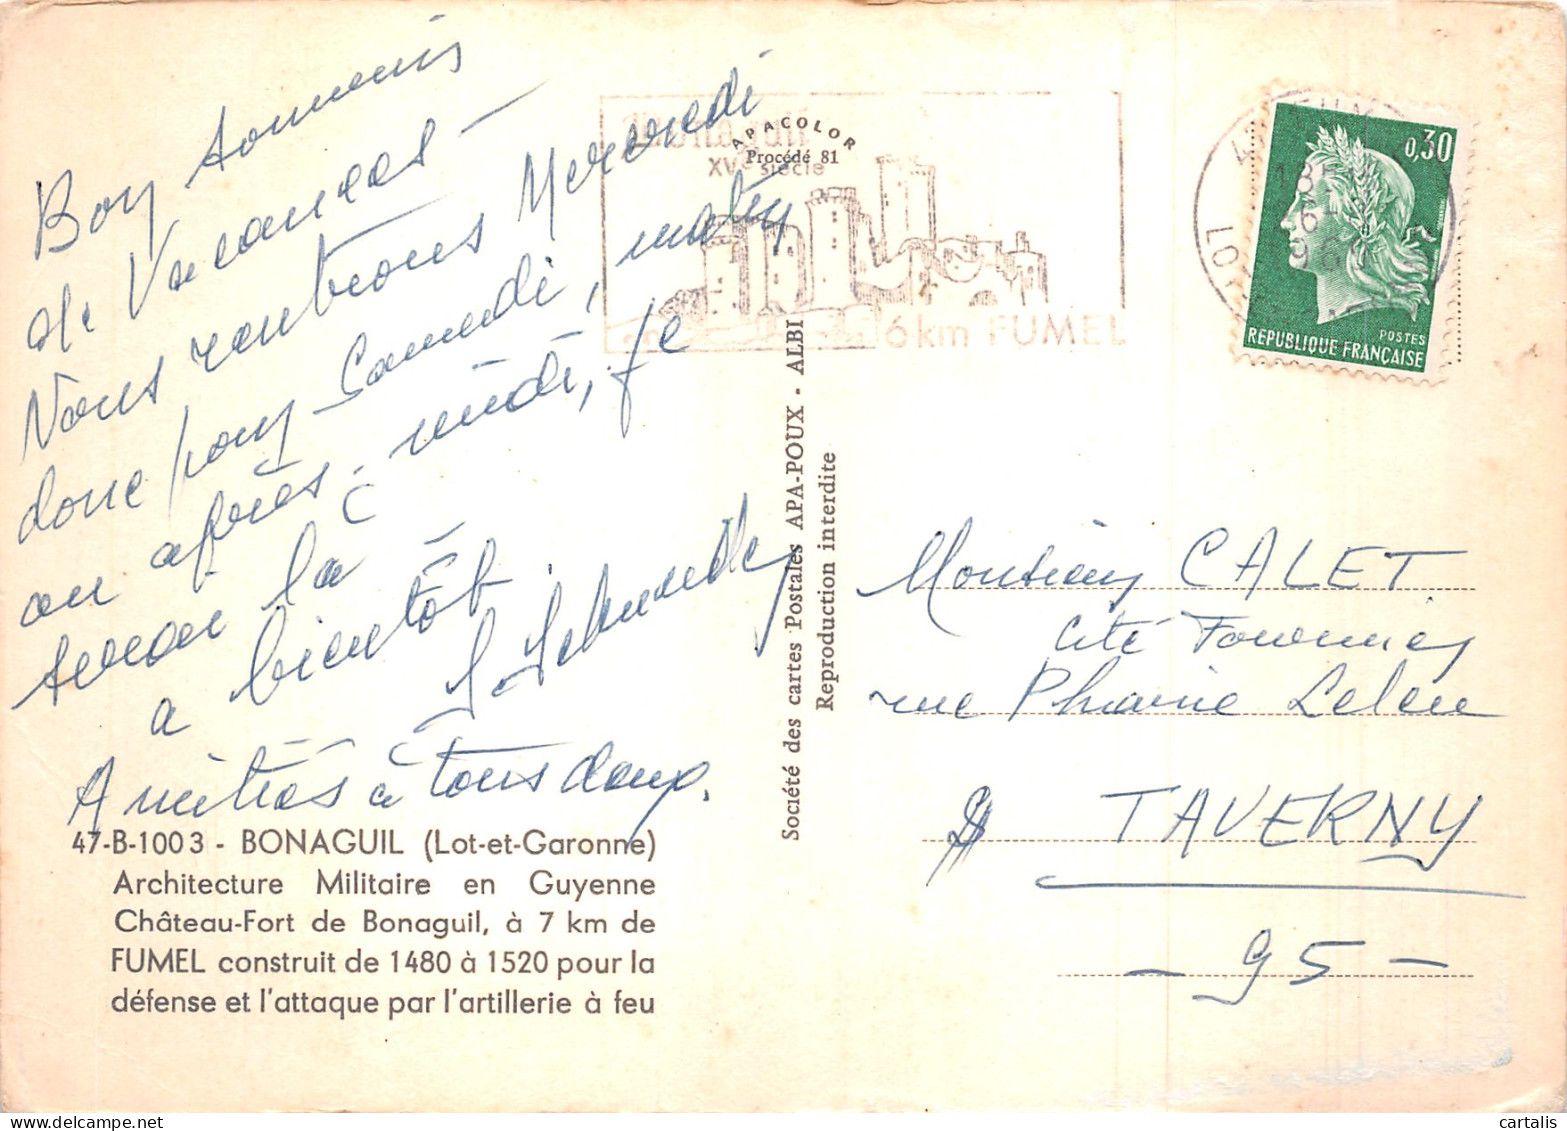 Bon souvenir
de Vacances -
Nous rentrons Mercredi
donc pour Samedi, matin
ou après-midi, je
serai là
a bientôt.
Amitiés à tous deux.
47-B-1003 - BONAGUIL (Lot-et-Garonne)
Architecture Militaire en Guyenne
Château-Fort de Bonaguil, à 7 km de
FUMEL construit de 1480 à 1520 pour la
défense et l'attaque par l'artillerie à feu
APACOLOR
Procédé 81
Bonaguil
XVe siècle
6 km FUMEL
Société des cartes Postales APA-POUX - ALBI
Reproduction interdite
0,30
POSTES
REPUBLIQUE FRANÇAISE
Monsieur CALET
cité Fournier
rue Leleu
TAVERNY
- 95 -
cartalis